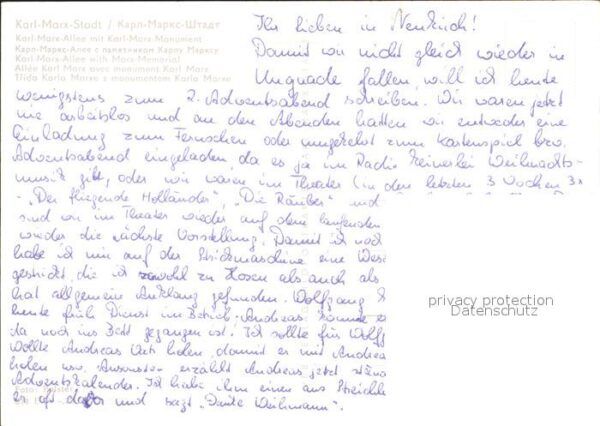 Karl-Marx-Stadt / Карл-Маркс-Штадт
Karl-Marx-Allee mit Karl-Marx Monument
Карл-Маркс-Алее с памятником Карлу Марксу
Karl-Marx-Allee with Marx-Memorial
Allée Karl Marx avec monument Karl Marx
Třída Karla Marxe s monumentem Karla Marxe
Ihr lieben in Neukirch!
Damit wir nicht gleich wieder in
Ungnade fallen, will ich heute
wenigstens zum 2. Adventsabend schreiben. Wir waren jetzt
nie arbeitslos und an den Abenden hatten wir entweder eine
Einladung zum Fernsehen oder umgekehrt zum Kartenspiel bzw.
Adventsabend eingeladen, da es ja im Radio keinerlei Weihnachts-
musik gibt, oder wir waren im Theater (in den letzten 3 Wochen 3x
- "Der fliegende Holländer", "Die Räuber" und
sind wir im Theater wieder auf dem laufenden
wieder die nächste Vorstellung. Damit ich noch
habe ich mir auf der Strickmaschine eine Weste
gestrickt, die ich sowohl zu Hosen als auch als
hat allgemein Anklang gefunden. Wolfgang
heute früh Dienst im Betrieb. Andreas konnte es
da noch ins Bett gegangen ist. Ich sollte für Wolfg
wollte Andreas Vati holen, damit er mit Andrea
holen usw. Ansonsten erzählt Andreas jetzt
Adventskalender. Ich habe ihm einen aus Streichh
er oft davor und sagt "Danke Weihmann".
privacy protection
Datenschutz